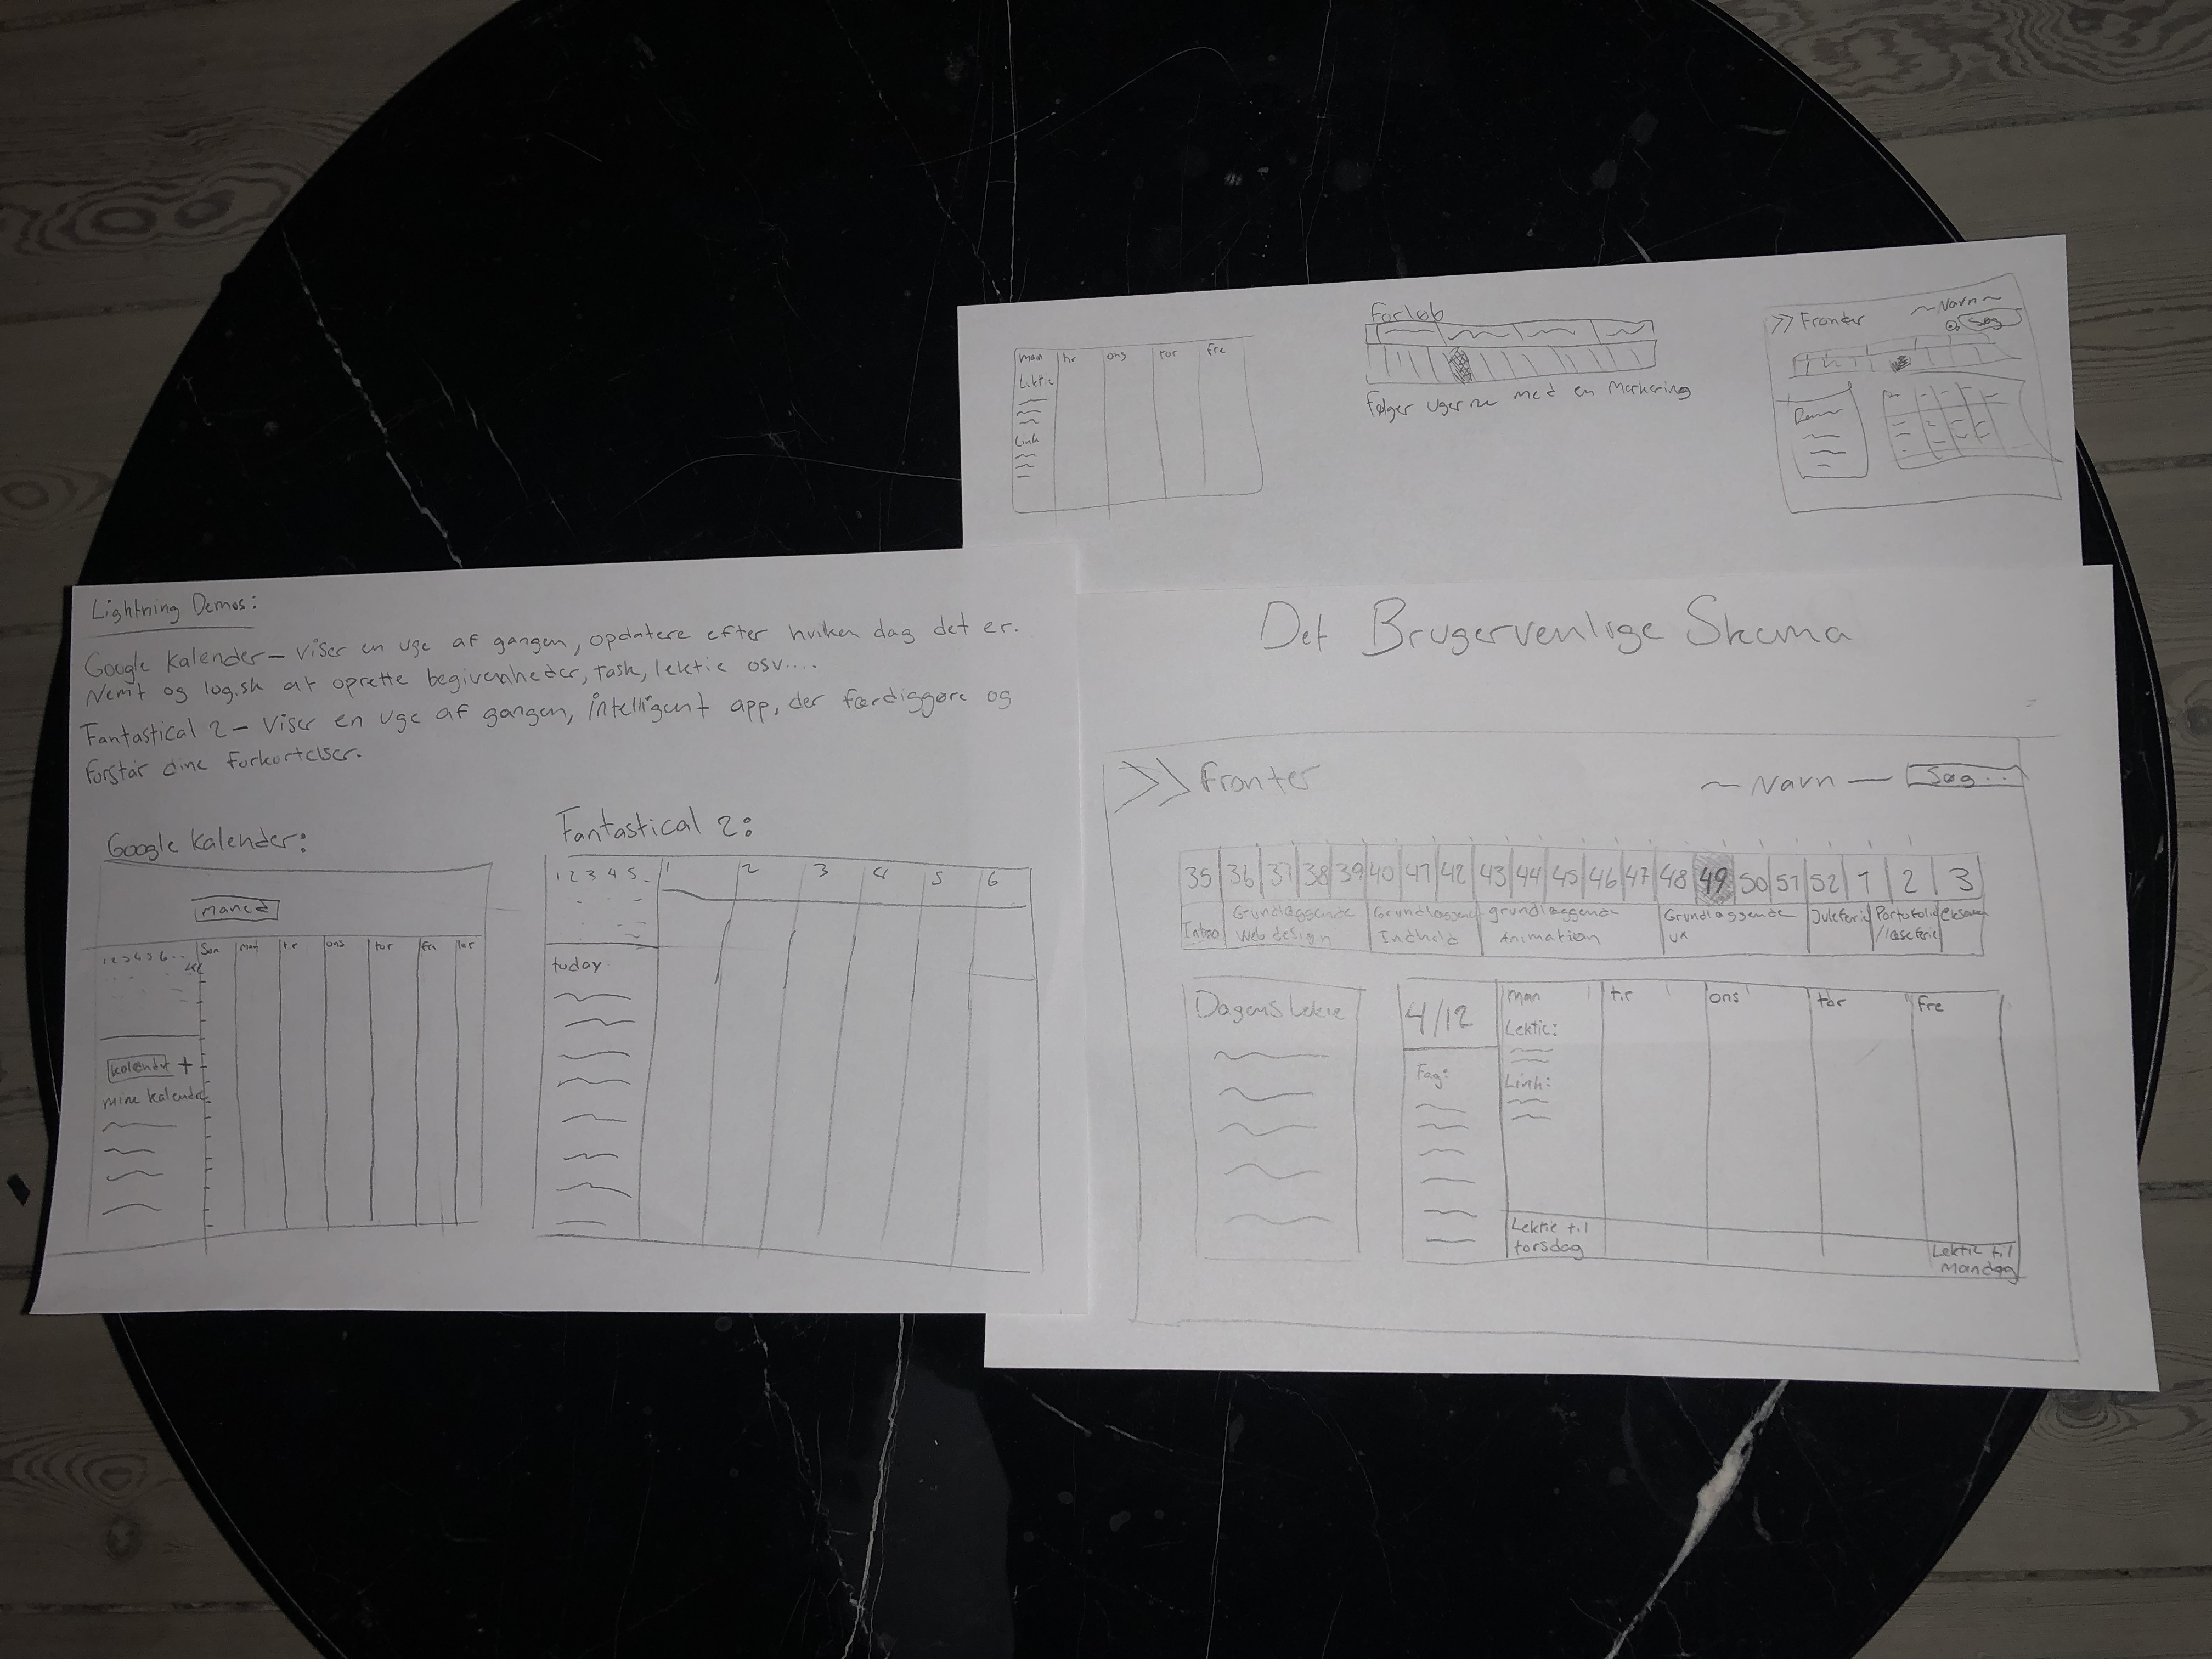 man tir ons tor fre
Lektie
Link
Forløb
Følger ugerne med en Markering
>> Fronter
~Navn~
Søg
Lightning Demos:
Google Kalender – Viser en uge af gangen, opdatere efter hviken dag det er.
Nemt og logisk at oprette begivenheder, Task, lektie osv....
Fantastical 2 – Viser en uge af gangen, intelligent app, der færdiggøre og
forstår dine forkortelser.
Google Kalender:
Måned
1 2 3 4 5 6 . .
Søn Man tir ons tor fre lør
kalender +
mine kalender
Fantastical 2:
1 2 3 4 5 .
1 2 3 4 5 6
today
Det Brugervenlige Skema
>> Fronter
~ Navn —
Søg . . .
35 36 37 38 39 40 41 42 43 44 45 46 47 48 49 50 51 52 1 2 3
Intro
Grundlæggende
Web design
Grundlæggende
Indhold
grundlæggende
Animation
Grundlæggende
UX
Juleferie
Portofolio
/læseferie
eksamen
Dagens Lektie
4/12
Fag:
man tir ons tor fre
Lektie:
Link:
Lektie til
torsdag
Lektie til
mandag